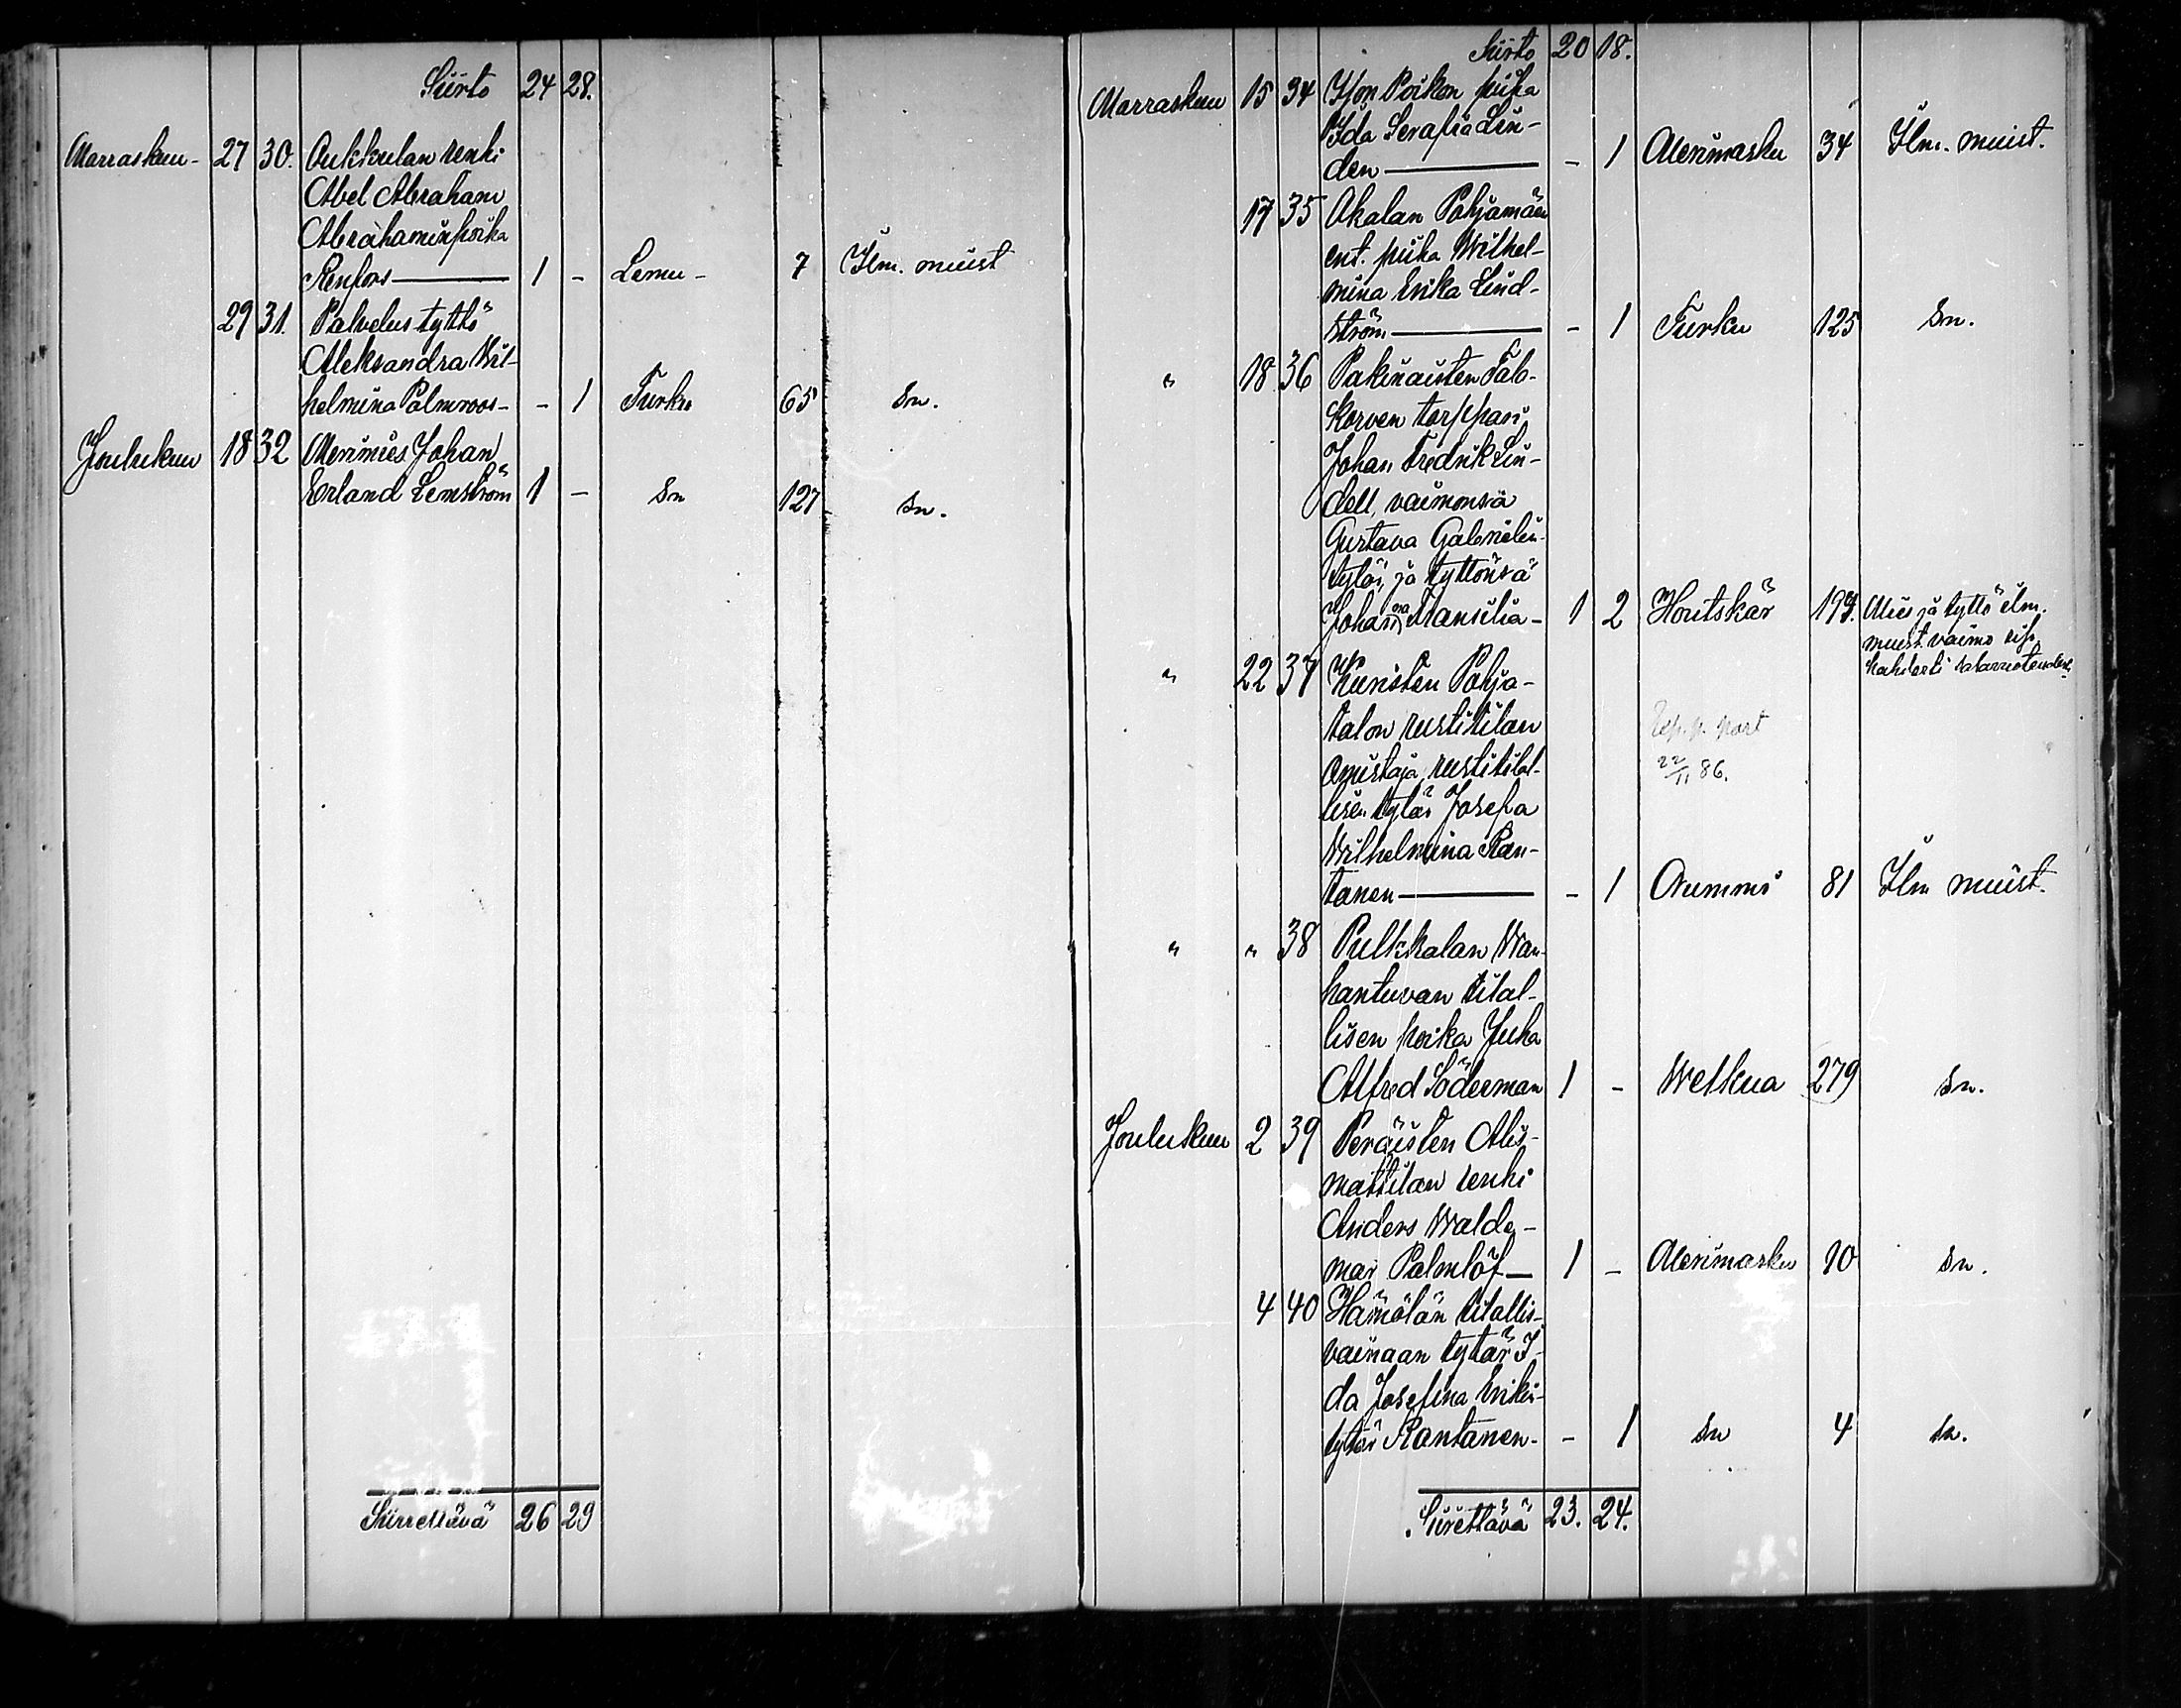 Siirto 24 28.
Marraskuu - 27 30. Oukkulan renki
Abel Abraham
Abrahaminpoika
Renfors — 1 - Lemu - 7 Ilm. muist
29 31. Palvelus tyttö
Aleksandra Wil-
helmina Palmroos - - 1 Turku 65 Sn.
Joulukuu 18 32 Merimies Johan
Erland Lemström 1 - Sn 127 Sn.
Siirrettävä 26 29
Siirto 20 18.
Marraskuu 15 34 Ison Poikon piika
Ida Serafia Lin-
den — - 1 Merimasku 34 Ilm. muist.
17 35 Akalan Pohjamäen
ent. piika Wilhel-
mina Erika Lind-
ström — - 1 Turku 125 Sn.
" 18 36 Pakinaisten Talo-
korven torppari
Johan Fredrik Lin-
dell, vaimonsa
Gustava Gabrielin-
tytär, ja tyttönsä
Johanna Fransilia - 1 2 Houtskär 199. Mies ja tyttö ilm.
muist. vaimo rip.
" 22 37 Kuristen Pohja-
talon rustitilan
omistaja, rustitilal-
lisen tytär Josefa
Wilhelmina Ran-
tanen — - 1 Nummi 81 Ilm muist.
22/11 86.
" " 38 Pulkkalan Wan-
hantuvan tilal-
lisen poika Juha
Alfred Söderman 1 - Welkua 279 Sn.
Joulukuu 2 39 Peräisten Alis-
mattilan renki
Anders Walde-
mar Palmlöf — 1 - Merimasku 10 Sn.
4 40 Hämölän tilallis-
vainaan tytär I-
da Josefina Erikin-
tytär Rantanen - - 1 Sn 4 Sn.
Siirettävä 23. 24.